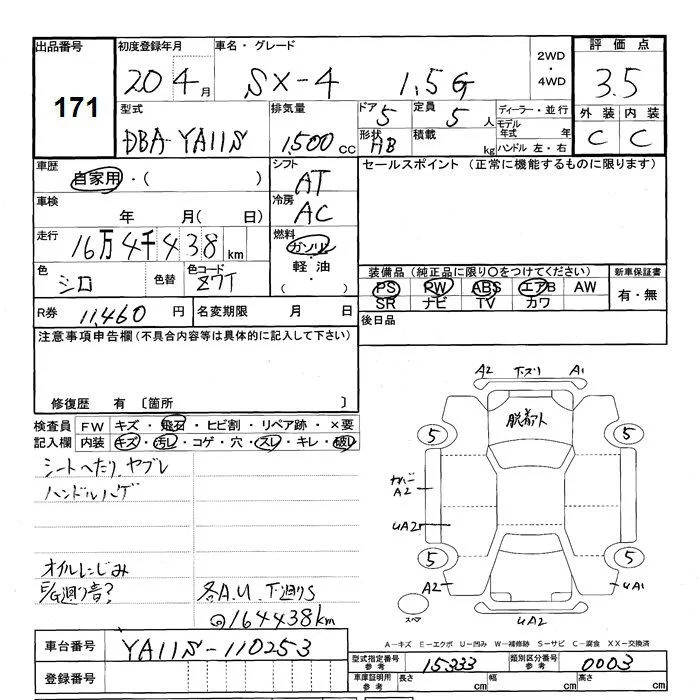 出品番号 初度登録年月 車名・グレード 2WD ・ 4WD 評価点
171 20 4月 SX-4 1.5G 3.5
型式 排気量 ドア 定員 ディーラー・並行 外装 内装
DBA-YA11S 1,500cc 5 5人 モデル年式 年 C C
形状 HB 積載 kg ハンドル 左・右
車歴 シフト セールスポイント (正常に機能するものに限ります)
自家用・( ) AT
車検 冷房
年 月( 日) AC
走行 燃料
16万4千438km ガソリン
色 色替 色コード ・軽油・
シロ Z7T ( )
装備品 (純正品に限り○をつけてください) 新車保証書
PS PW ABS エアB AW 有・無
SR ナビ TV カワ
R券 11,460円 名変期限 月 日 後日品
注意事項申告欄 (不具合内容等は具体的に記入して下さい)
修復歴 有 〔箇所 〕
検査員 FW キズ・飛石・ヒビ割・リペア跡・×要
記入欄 内装 キズ・汚レ・コゲ・穴・スレ・キレ・破レ
シートへたり、ヤブレ
ハンドルハゲ
オイルにじみ
E/G廻り音?
各A.U 下廻りS
@164438km
A2 下スリ A1
脱着ト
5 5
A2
UA2
5 5
A2 UA1
スペア UA2
A－キズ E－エクボ U－凹み W－補修跡 S－サビ C－腐食 XX－交換済
車台番号 YA11S-110253
型式指定番号 参考 15333 類別区分番号 参考 0003
登録番号
車庫証明用 参考 長さ cm 幅 cm 高さ cm